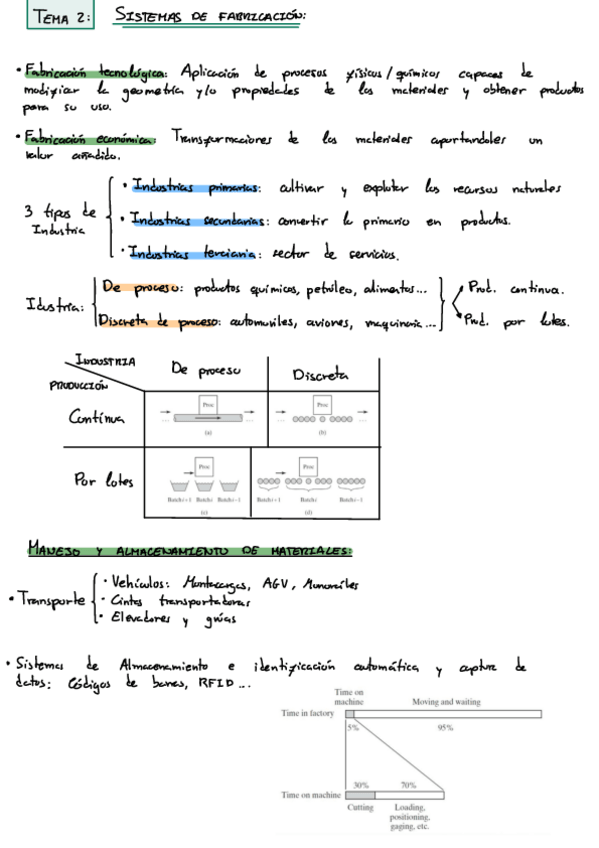 TEMA 2: SISTEMAS DE FABRICACIÓN:
• Fabricación tecnológica: Aplicación de procesos físicos/químicos capaces de
modificar la geometría y/o propiedades de los materiales y obtener productos
para su uso.
• Fabricación económica: Transformaciones de los materiales aportandoles un
valor añadido.
3 tipos de
Industria
• Industrias primarias: cultivar y explotar los recursos naturales
• Industrias secundarias: convertir lo primario en productos.
• Industrias terciaria: sector de servicios.
Idustria:
De proceso: productos químicos, petróleo, alimentos...
Discreta de proceso: automoviles, aviones, maquinaria...
Prod. continua.
Prod. por lotes.
INDUSTRIA
PRODUCCIÓN
De proceso
Discreta
Contínua
Proc
(a)
Proc
(b)
Por lotes
Proc
Batch i+1 Batch i Batch i−1
(c)
Proc
Batch i+1 Batch i Batch i−1
(d)
MANEJO Y ALMACENAMIENTO DE MATERIALES:
• Transporte
• Vehículos: Montacargas, AGV, Monorailes
• Cintas transportadoras
• Elevadores y grúas
• Sistemas de Almacenamiento e identificación automática y captura de
datos: Códigos de barras, RFID...
Time on
machine
Moving and waiting
Time in factory
5%
95%
30%
70%
Time on machine
Cutting
Loading,
positioning,
gaging, etc.